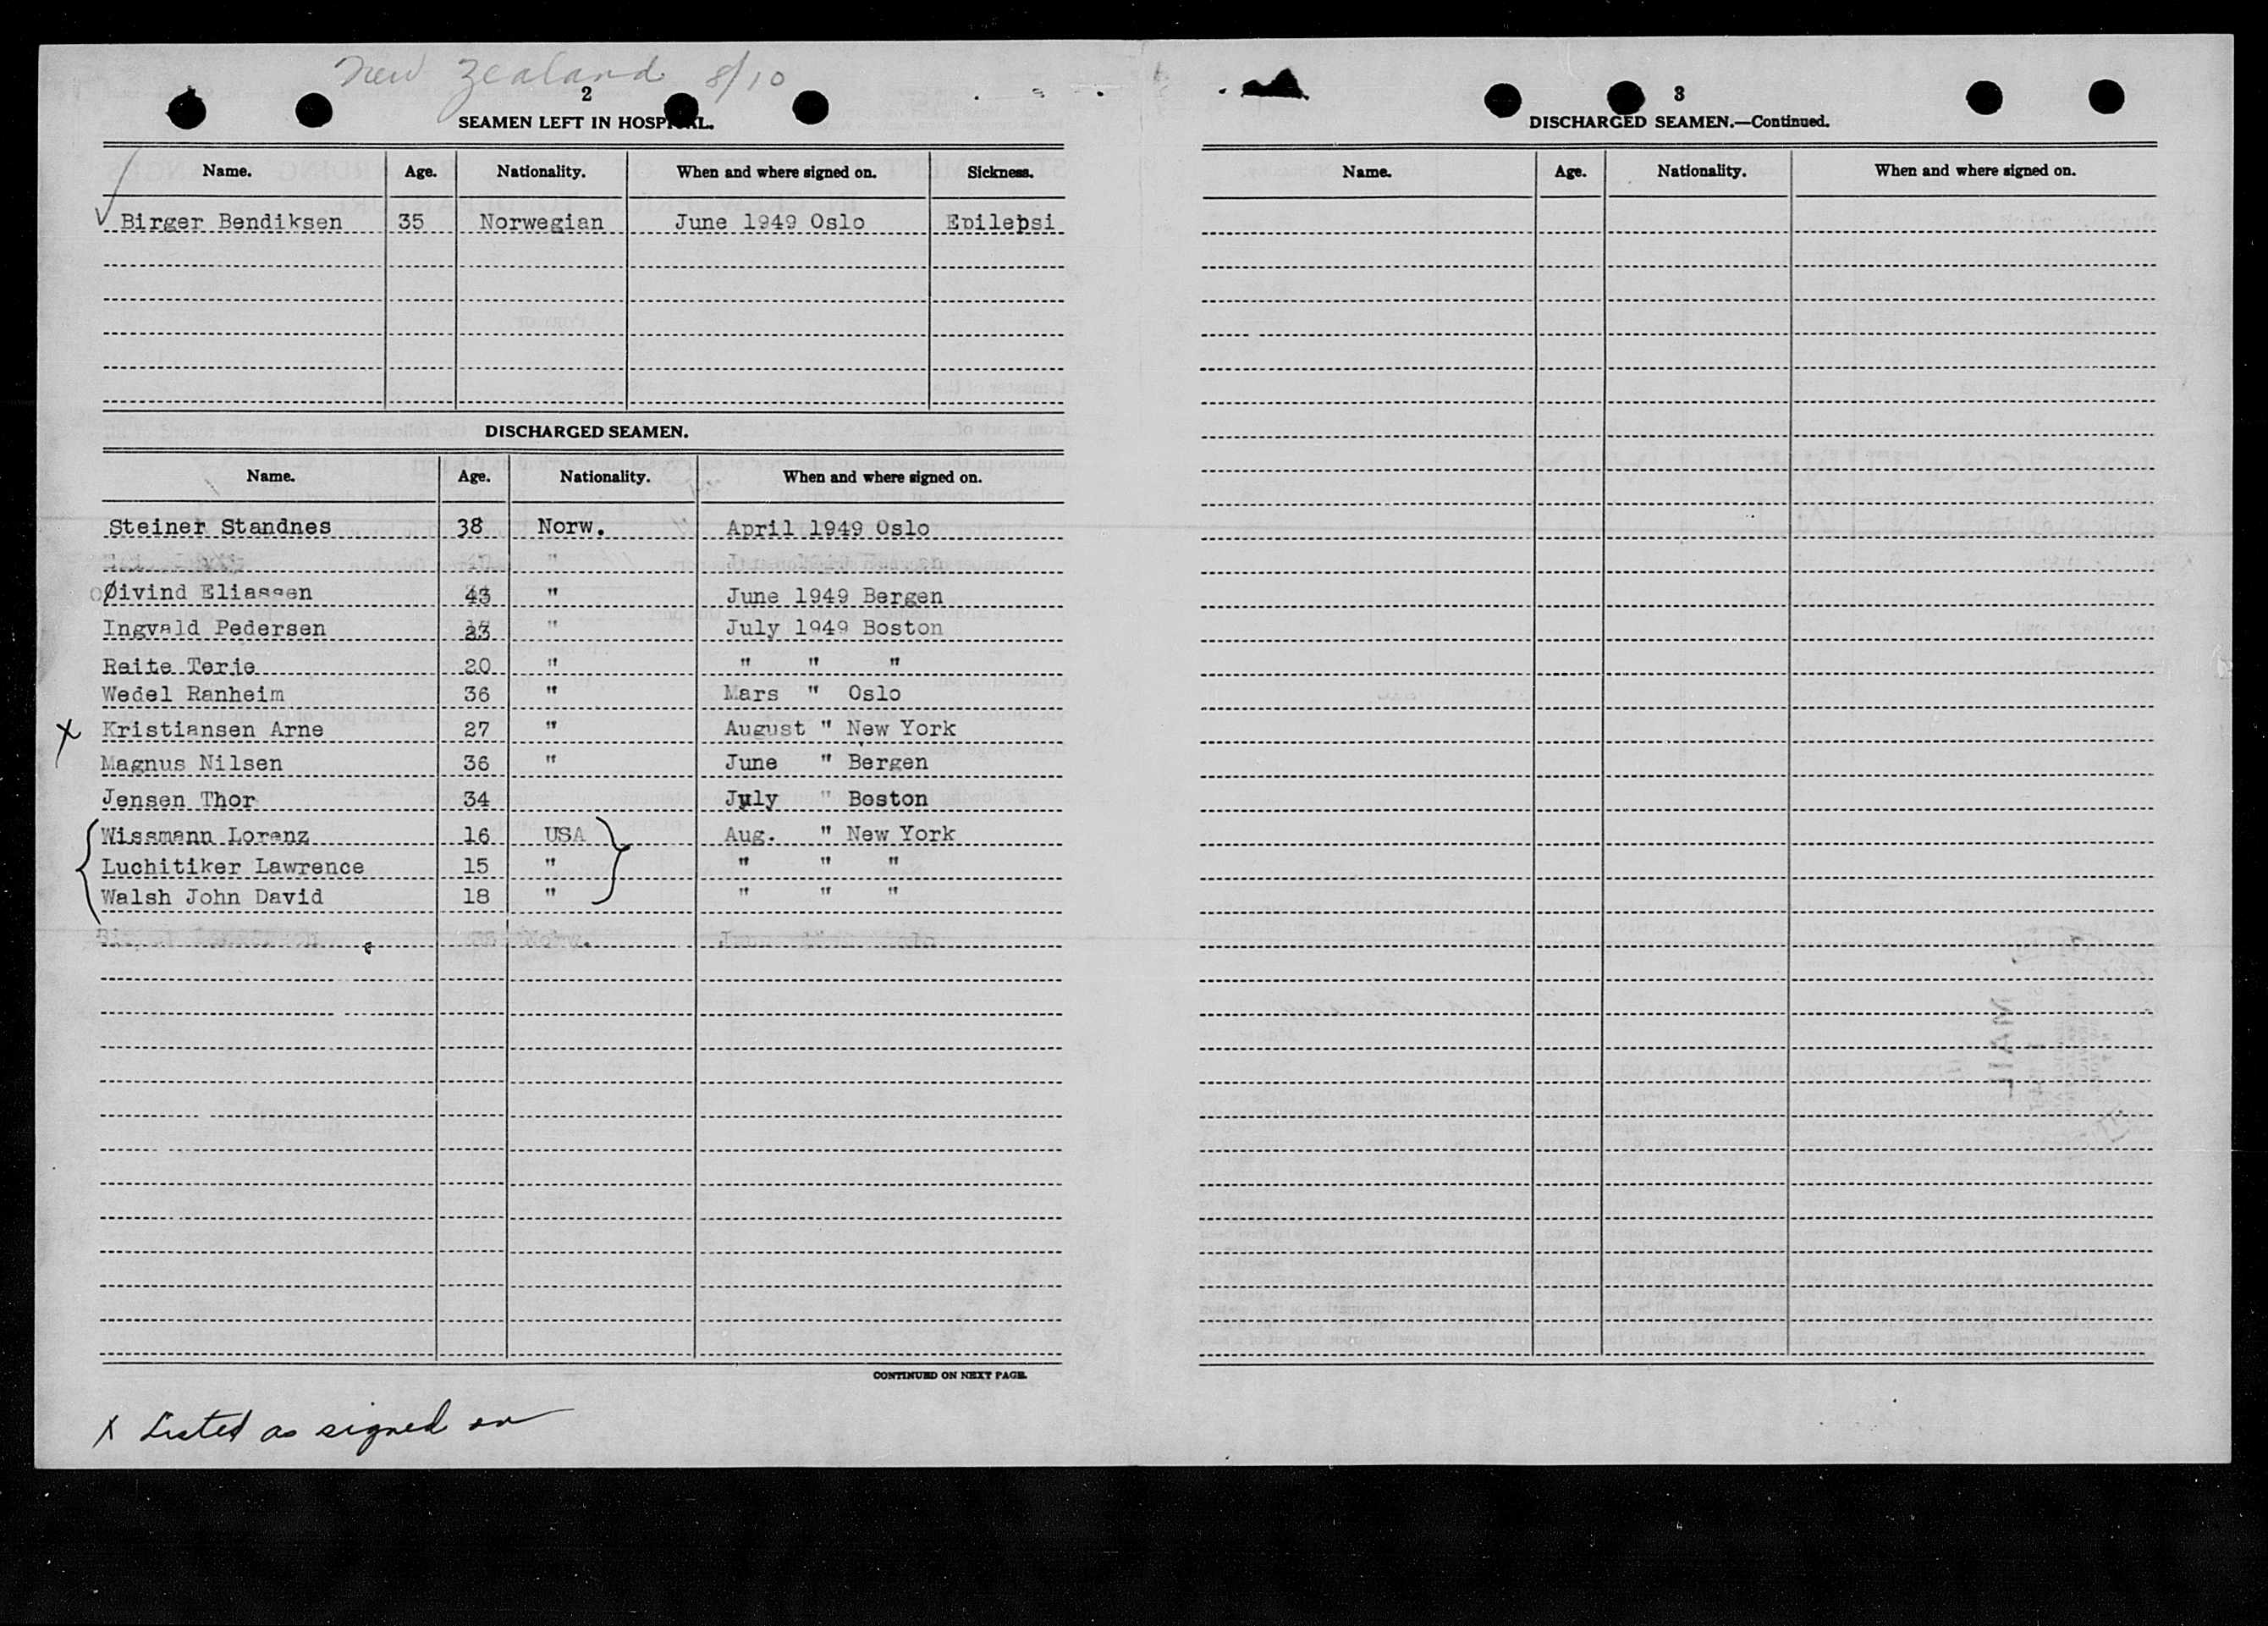 New Zealand 8/10
2
SEAMEN LEFT IN HOSPITAL.
Name. Age. Nationality. When and where signed on. Sickness.
Birger Bendiksen 35 Norwegian June 1949 Oslo Epilepsi
DISCHARGED SEAMEN.
Name. Age. Nationality. When and where signed on.
Steiner Standnes 38 Norw. April 1949 Oslo
"
Øivind Eliassen 43 " June 1949 Bergen
Ingvald Pedersen 23 " July 1949 Boston
Raite Terje 20 " " " "
Wedel Ranheim 36 " Mars " Oslo
X Kristiansen Arne 27 " August " New York
Magnus Nilsen 36 " June " Bergen
Jensen Thor 34 July " Boston
Wissmann Lorenz 16 USA Aug. " New York
Luchitiker Lawrence 15 " " " "
Walsh John David 18 " " " "
CONTINUED ON NEXT PAGE.
X Listed as signed on
3
DISCHARGED SEAMEN.—Continued.
Name. Age. Nationality. When and where signed on.